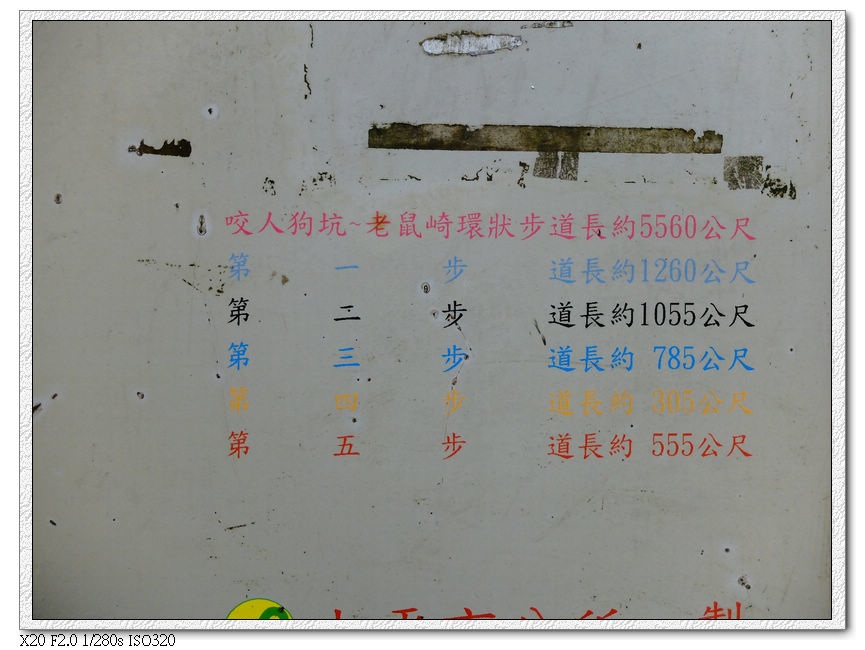 咬人狗坑~老鼠崎環狀步道長約5560公尺
第一步道長約1260公尺
第二步道長約1055公尺
第三步道長約 785公尺
第四步道長約 305公尺
第五步道長約 555公尺
製
X20 F2.0 1/280s ISO320